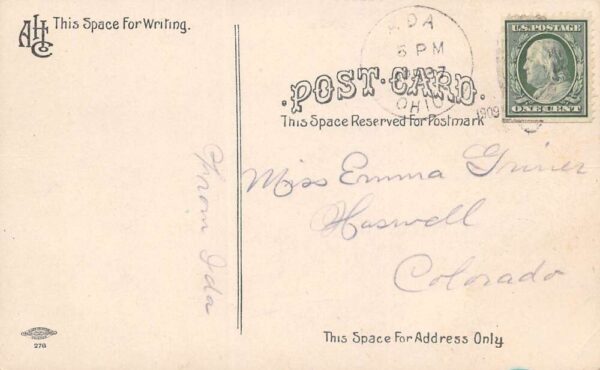 AHC
This Space For Writing.
ADA
5 PM
OHIO
1909
U.S. POSTAGE
ONE CENT
POST CARD.
This Space Reserved For Postmark
Miss Emma Griner
Haswell
Colorado
From Ida
This Space For Address Only.
276